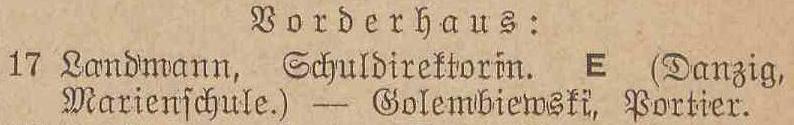 Vorderhaus:
17 Landmann, Schuldirektorin. E (Danzig,
Marienschule.) — Golembiewski, Portier.